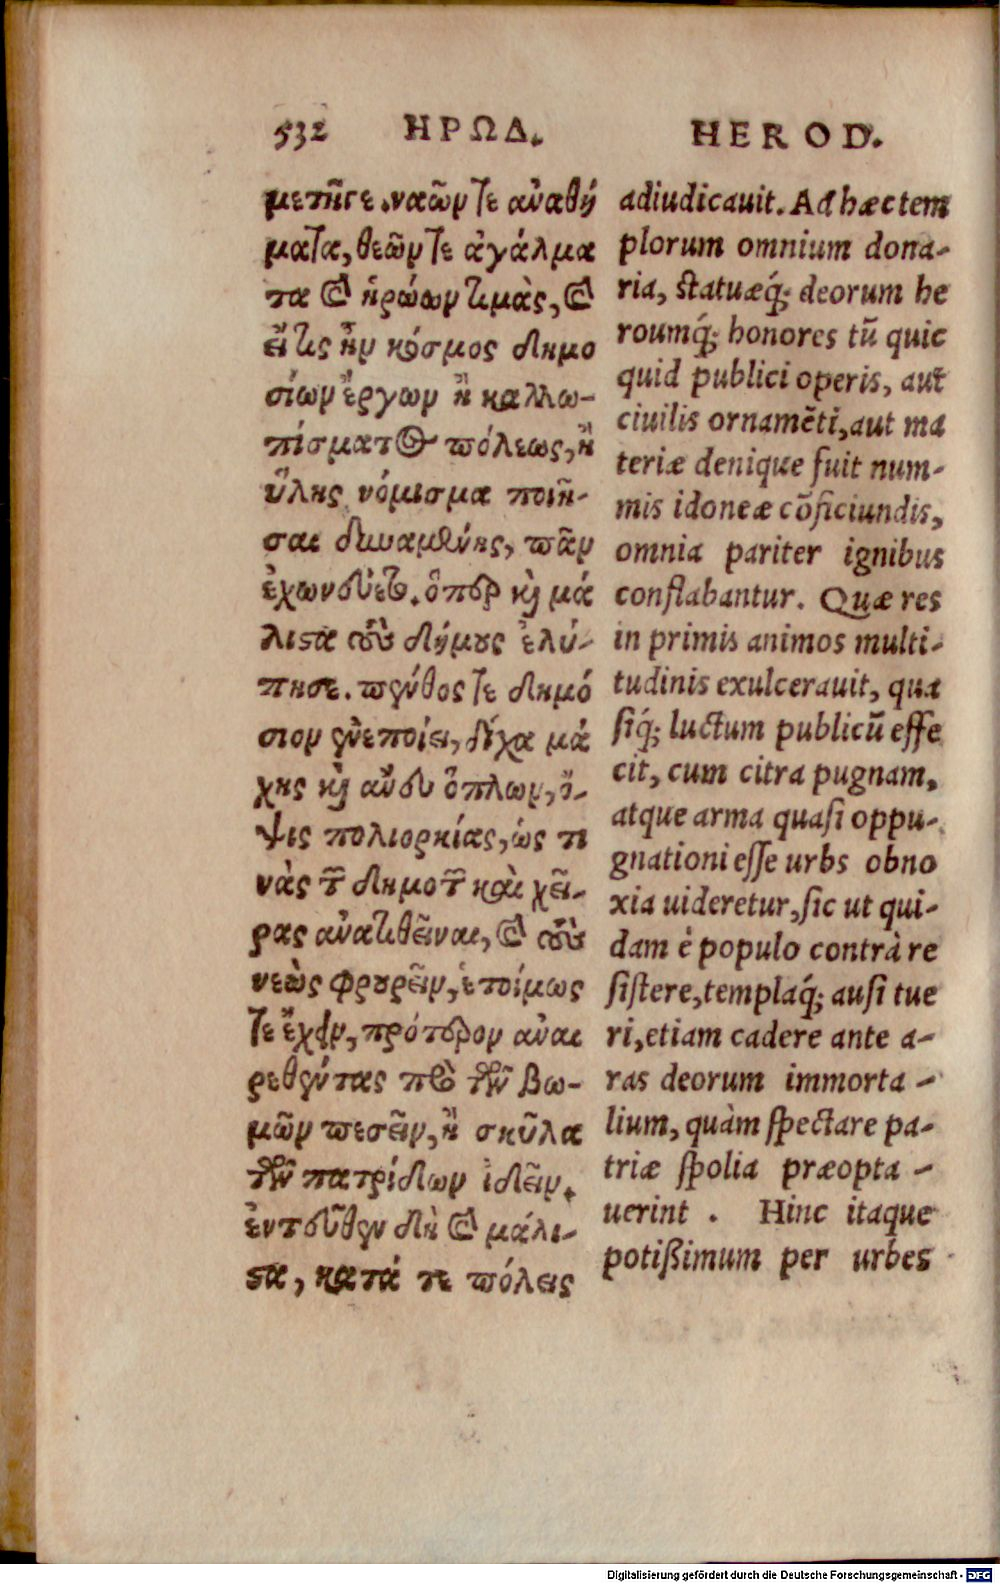 532 ΗΡΩΔ.
μετῆγε. ναῶν τε ἀναθή
ματα, θεῶν τε ἀγάλμα
τα καὶ ἡρώων τιμὰς, καὶ
εἴ τις ἦν κόσμος δημο
σίων ἔργων ἢ καλλω-
πίσματος πόλεως, ἢ
ὕλης νόμισμα ποιῆ-
σαι δυναμένης, πᾶν
ἐχωνεύετο. ὅπερ καὶ μά
λιστα τοὺς δήμους ἐλύ-
πησε. πένθος τε δημό
σιον ἐνεποίει, δίχα μά
χης καὶ ἄνευ ὅπλων, ὄ-
ψις πολιορκίας, ὡς τι
νὰς τῶν δημοτῶν καὶ χεῖ-
ρας ἀνατιθεῖναι, καὶ τοὺς
νεὼς φρουρεῖν, ἑτοίμως
τε ἔχειν, πρότερον ἀναι
ρεθέντας πρὸ τῶν βω-
μῶν πεσεῖν, ἢ σκῦλα
τῶν πατρίδων ἰδεῖν.
ἐντεῦθεν δὴ καὶ μάλι-
στα, κατά τε πόλεις
HEROD.
adiudicauit. Ad hæc tem
plorum omnium dona-
ria, statuæq́; deorum he
roumq́; honores tũ quic
quid publici operis, aut
ciuilis ornamẽti, aut ma
teriæ denique fuit num-
mis idoneæ cõficiundis,
omnia pariter ignibus
conflabantur. Quæ res
in primis animos multi-
tudinis exulcerauit, qua
siq́; luctum publicũ effe
cit, cum citra pugnam,
atque arma quasi oppu-
gnationi esse urbs obno
xia uideretur, sic ut qui-
dam è populo contrà re
sistere, templaq́; ausi tue
ri, etiam cadere ante a-
ras deorum immorta -
lium, quàm spectare pa-
triæ spolia præopta -
uerint . Hinc itaque
potißimum per urbes
Digitalisierung gefördert durch die Deutsche Forschungsgemeinschaft - DFG